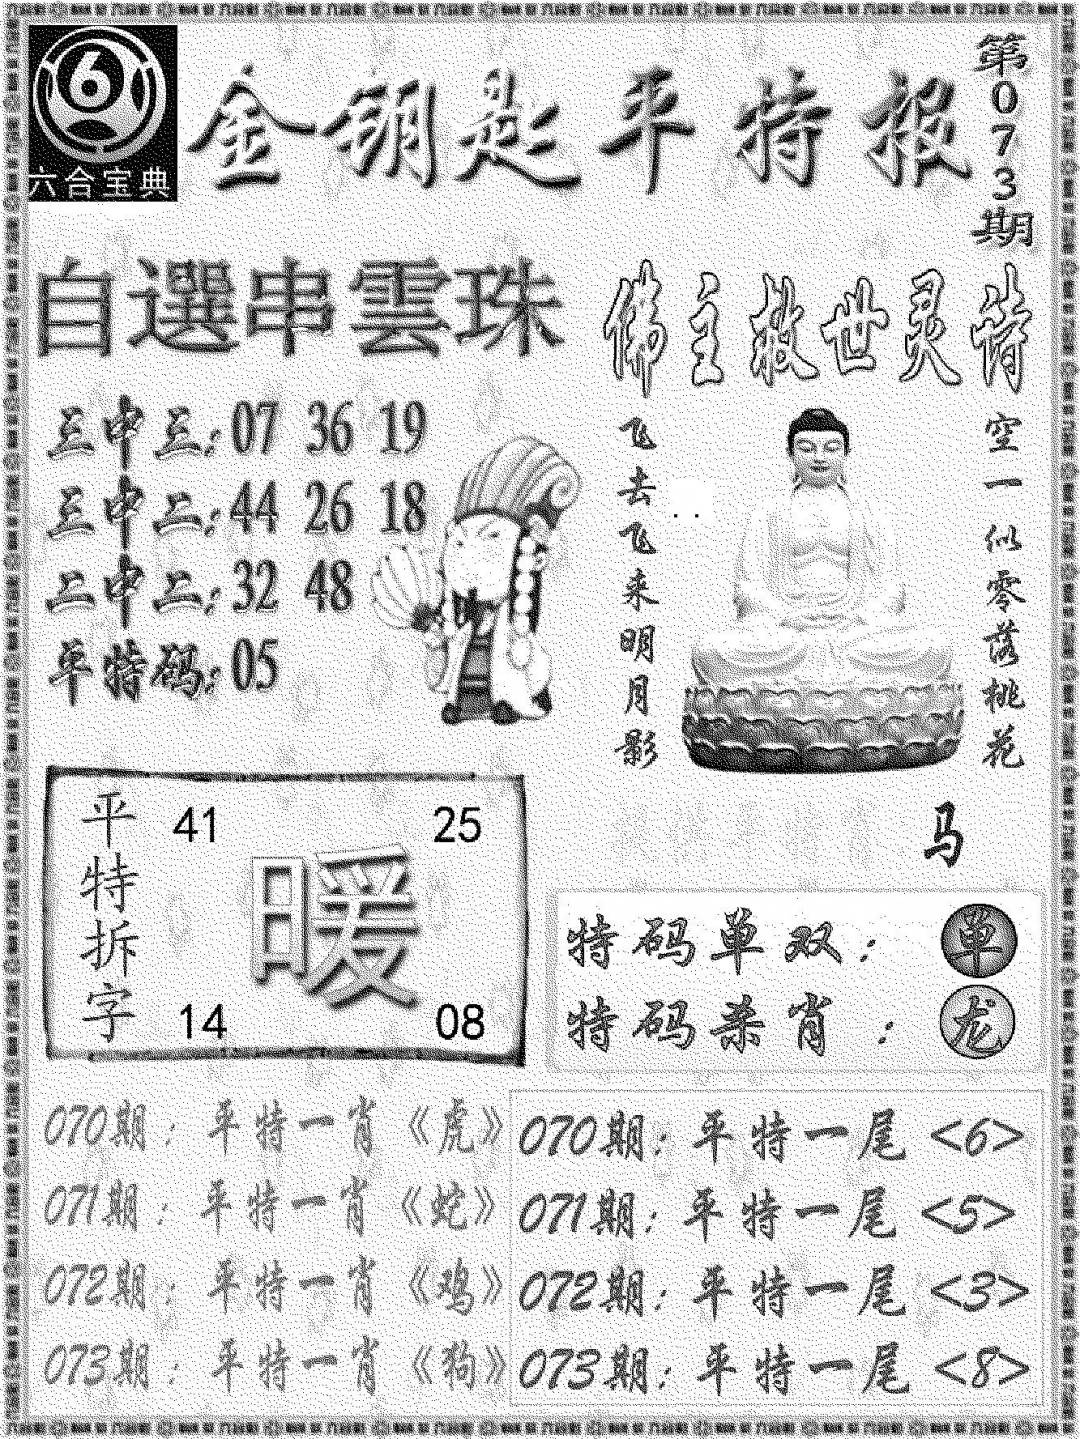 六合宝典
金钥匙平特报
第073期
自選串雲珠
三中三：07 36 19
三中二：44 26 18
二中二：32 48
平特码：05
佛主救世灵诗
空一似零落桃花
飞去飞来明月影
马
平特拆字
41 25
暖
14 08
特码单双： 单
特码杀肖： 龙
070期：平特一肖《虎》
071期：平特一肖《蛇》
072期：平特一肖《鸡》
073期：平特一肖《狗》
070期：平特一尾<6>
071期：平特一尾<5>
072期：平特一尾<3>
073期：平特一尾<8>